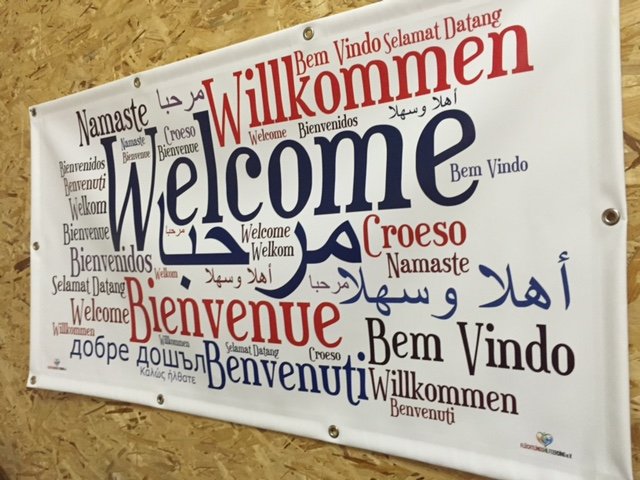 Bem Vindo
Selamat Datang
Willkommen
Namaste
مرحبا
أهلا و سهلا
Welcome
Bienvenidos
Croeso
Namaste
Bienvenue
Bienvenue
Welcome
Bienvenidos
Benvenuti
Welkom
Bienvenue
Bienvenidos
Bem Vindo
مرحبا
مرحبا
Welcome
Welkom
Croeso
Namaste
Welkom
أهلا و سهلا
مرحبا
أهلا و سهلا
Selamat Datang
Welcome
Bienvenue
Willkommen
Bem Vindo
добре дошъл
Selamat Datang
Croeso
Καλώς ήλθατε
Benvenuti
Willkommen
Benvenuti